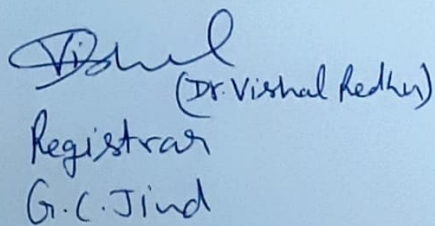 Vishal
(Dr. Vishal Redhu)
Registrar
G.C. Jind